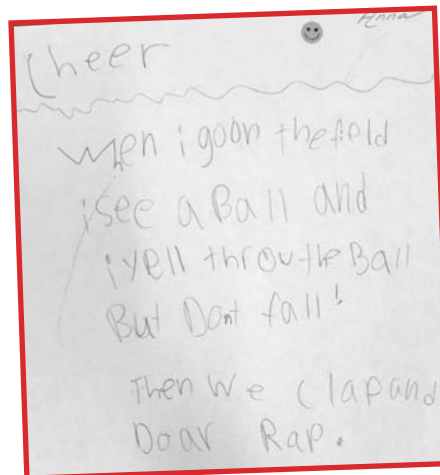 Anna
Cheer
When i goon thefield
i see a Ball and
i yell throu the Ball
But Dont fall!
Then We Clapand
Doar Rap.